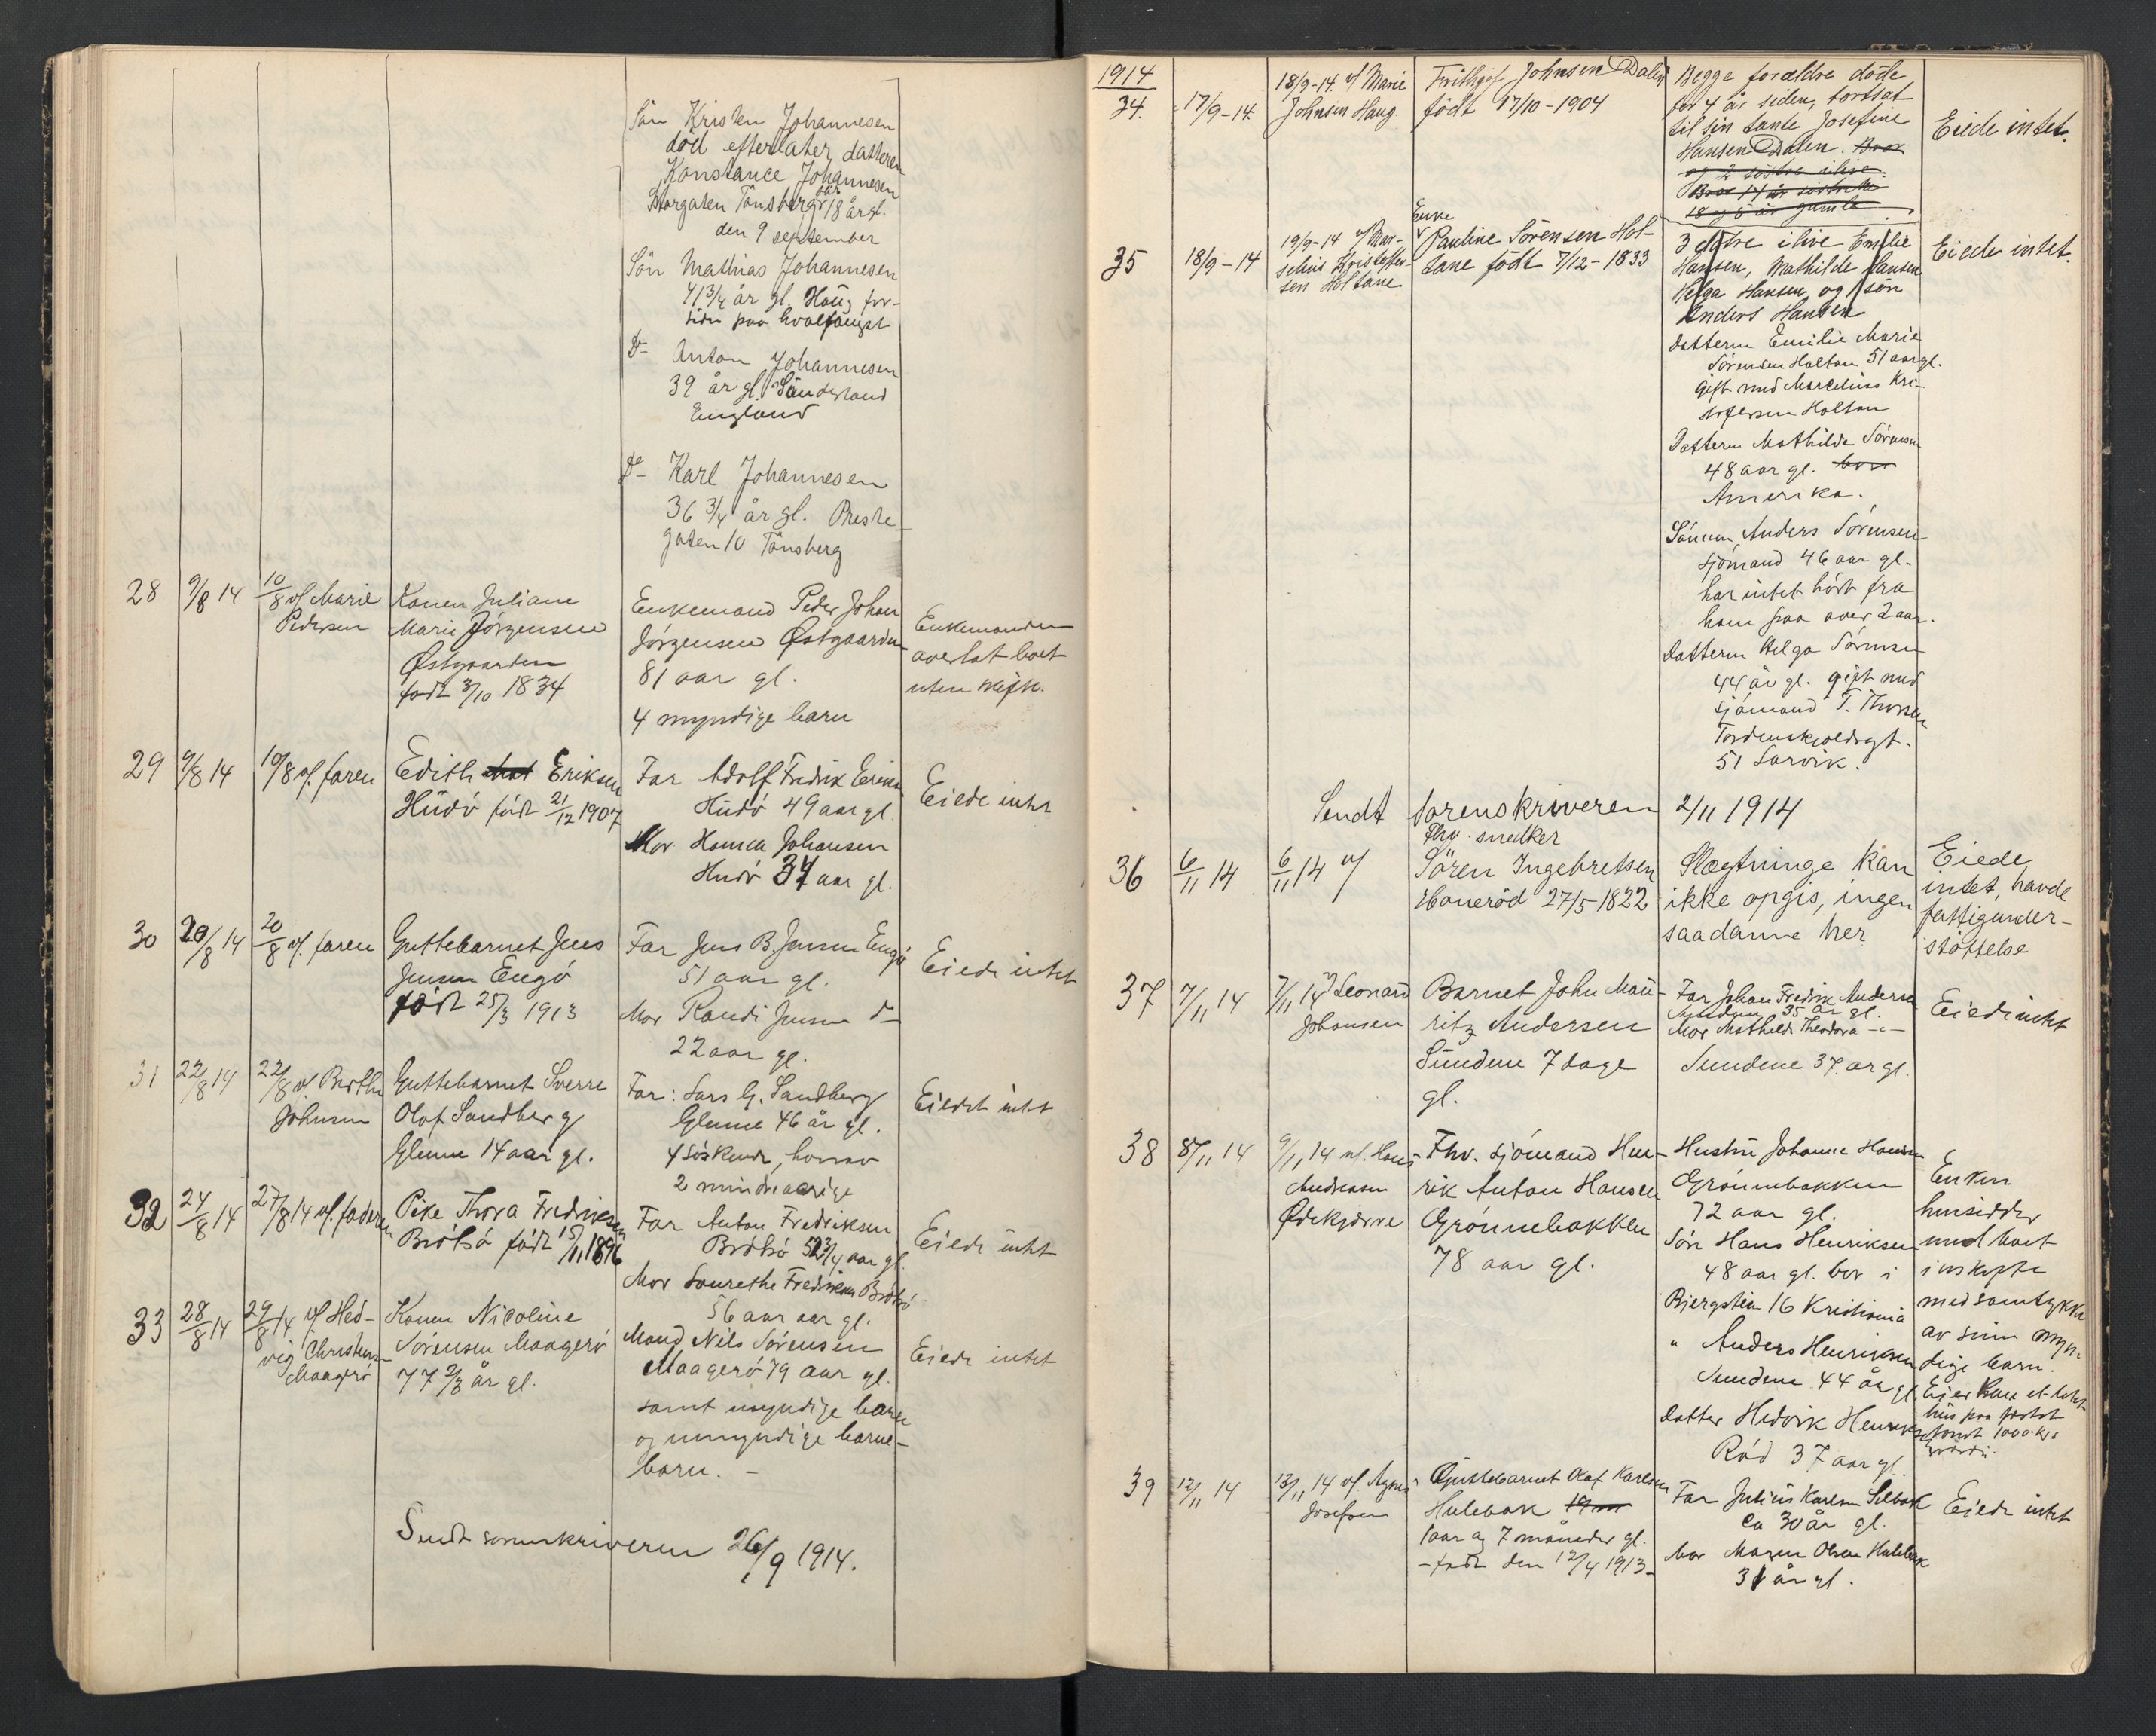 Sön Kristen Johannesen
död efterlater datteren
Konstance Johannesen
Storgaten Tönsberg 18 år gl.
den 9 september
Sön Mathias Johannesen
41 3/4 år gl. Haug for-
tiden paa hvalfangst
Do Anton Johannesen
39 år gl. Sunderland
England
Do Karl Johannesen
36 3/4 år gl. Preste-
gaten 10 Tönsberg
28 9/8 14 10/8 v/ Marie
Pedersen
Konen Juliane
Marie Jörgensen
Østgaarden
født 3/10 1834
Enkemand Peder Johan
Jörgensen Østgaarden
81 aar gl.
4 myndige barn
Enkemanden
overtat boet
uten skifte.
29 9/8 14 10/8 v/ faren
Edith Eriksen
Husö födt 21/12 1907
Far Adolf Fredrik Eriksen
Husö 49 aar gl.
Mor Johansen
Husö 37 aar gl.
Eiede intet
30 20/8 14 20/8 v/ faren
Guttebarnet Jens
Jensen Engö
födt 25/3 1913
Far Jens B. Jensen Engö
51 aar gl.
Mor Randi Jensen do
22 aar gl.
Eiede intet
31 22/8 14 22/8 v/ Berthe
Johnsen
Guttebarnet Sverre
Olaf Sandberg
Glenne 14 aar gl.
Far: Lars G. Sandberg
Glenne 46 år gl.
4 söskende, hvorav
2 mindreaarige
Eiedet intet
32 24/8 14 27/8 14 v/ faderen
Pike Thora Fredriksen
Brötsö födt 15/11 1896
Far Anton Fredriksen
Brötsö 52 3/4 aar gl.
Mor Laurethe Fredriksen Brötsö
56 aar aar gl.
Eiede intet
33 28/8 14 29/8 14 v/ Hed-
vig Christensen
Maagerö
Konen Nicoline
Sörensen Maagerö
77 2/3 år gl.
Mand Nils Sörensen
Maagerö 79 aar gl.
samt myndige barn
og umyndige barne-
barn. -
Eiede intet
Sendt sorenskriveren 26/9 1914.
1914
34. 17/9-14. 18/9-14. v/ Marie
Johnsen Haug.
Frithjof Johnsen Dalen
födt 17/10-1904
Begge forældre döde
for 4 år siden, bortsat
til sin tante Josefine
Hansen Dalen. Bror
og 2 söstre ilive.
Bror 14 år söstrene
18 og 6 år gamle
Eiede intet.
35 18/9-14 19/9-14 v/ Mar-
selius Kristoffer-
sen Holtane
Enke
Pauline Sörensen Hol-
tane födt 7/12-1833
3 dötre ilive Emilie
Hansen, Mathilde Hansen
Helga Hansen, og 1 sön
Anders Hansen
Datteren Emilie Marie
Sörensen Holtan 51 aar gl.
gift med Marcelius Kri-
stofersen Holtan
Datteren Mathilde Sörensen
48 aar gl. bor
Amerika.
Sönnen Anders Sörensen
sjömand 46 aar gl.
har intet hört fra
ham paa over 2 aar.
Datteren Helga Sörensen
44 år gl. gift med
sjömand T. Thorsen
Tordenskjoldsgt.
51 Larvik.
Eiede intet.
Sendt sorenskriveren 2/11 1914
36 6/11 14 6/11 14 v/
Fhv. snedker
Sören Ingebretsen
Haneröd 27/5 1822
Slægtninge kan
ikke opgis, ingen
saadanne her
Eiede
intet, havde
fattigunder-
stöttelse
37 7/11 14 7/11 14 v/ Leonard
Johansen
Barnet John Mau-
ritz Andersen
Sundene 7 dage
gl.
Far Johan Fredrik Andersen
Sundene 35 år gl.
Mor Mathilde Theodora -"-
Sundene 37 ar gl.
Eiede intet
38 8/11 14 9/11 14 v/. Hans
Andreasen
Ødekjærre
Fhv. sjömand Hen-
rik Anton Hansen
Grönnebakken
78 aar gl.
Hustru Johanne Hansen
Grönnebakken
72 aar gl.
Sön Hans Henriksen
48 aar gl. bor i
Bjergstien 16 Kristiania
" Anders Henriksen
Sundene 44 år gl.
Datter Hedvik Henriksen
Röd 37 aar gl.
Enken
hensidder
med boet
i uskifte
med samtykke
av sine myn-
dige barn.
Eier kun et lidet
hus paa festet
tomt 1000 kr.s
værdi.
39 12/11 14 13/11 14 v/. Agnes
Josefsen
Guttebarnet Olaf Karlsen
Hulebak
1 aar og 7 måneder gl.
- födt den 12/4 1913 -
Far Julius Karlsen Solbak
ca 30 år gl.
Mor Maren Olsen Hulebak
31 år gl.
Eiede intet